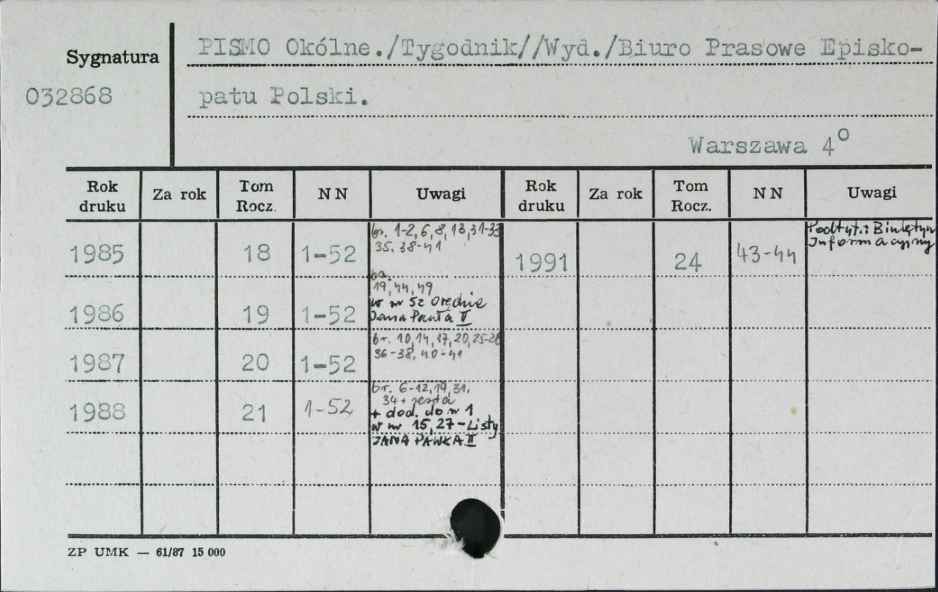 Sygnatura
032868
PISMO Okólne./Tygodnik//Wyd./Biuro Prasowe Episko-
patu Polski.
Warszawa 4°
Rok druku Za rok Tom Rocz. NN Uwagi Rok druku Za rok Tom Rocz. NN Uwagi
1985 18 1-52 br. 1-2,6,8,13,31-33
35,38-41
1991 24 43-44 Podtyt.: Biuletyn
Informacyjny
1986 19 1-52 br.
19,44,49
w nr 52 Orędzie
Jana Pawła II
1987 20 1-52 br. 10,14,17,20,25-26
36-38, 40-41
1988 21 1-52 br. 6-12,19,31,
34+
+ dod. do nr 1
w nr 15,27-Listy
JANA PAWŁA II
ZP UMK — 61/87 15 000